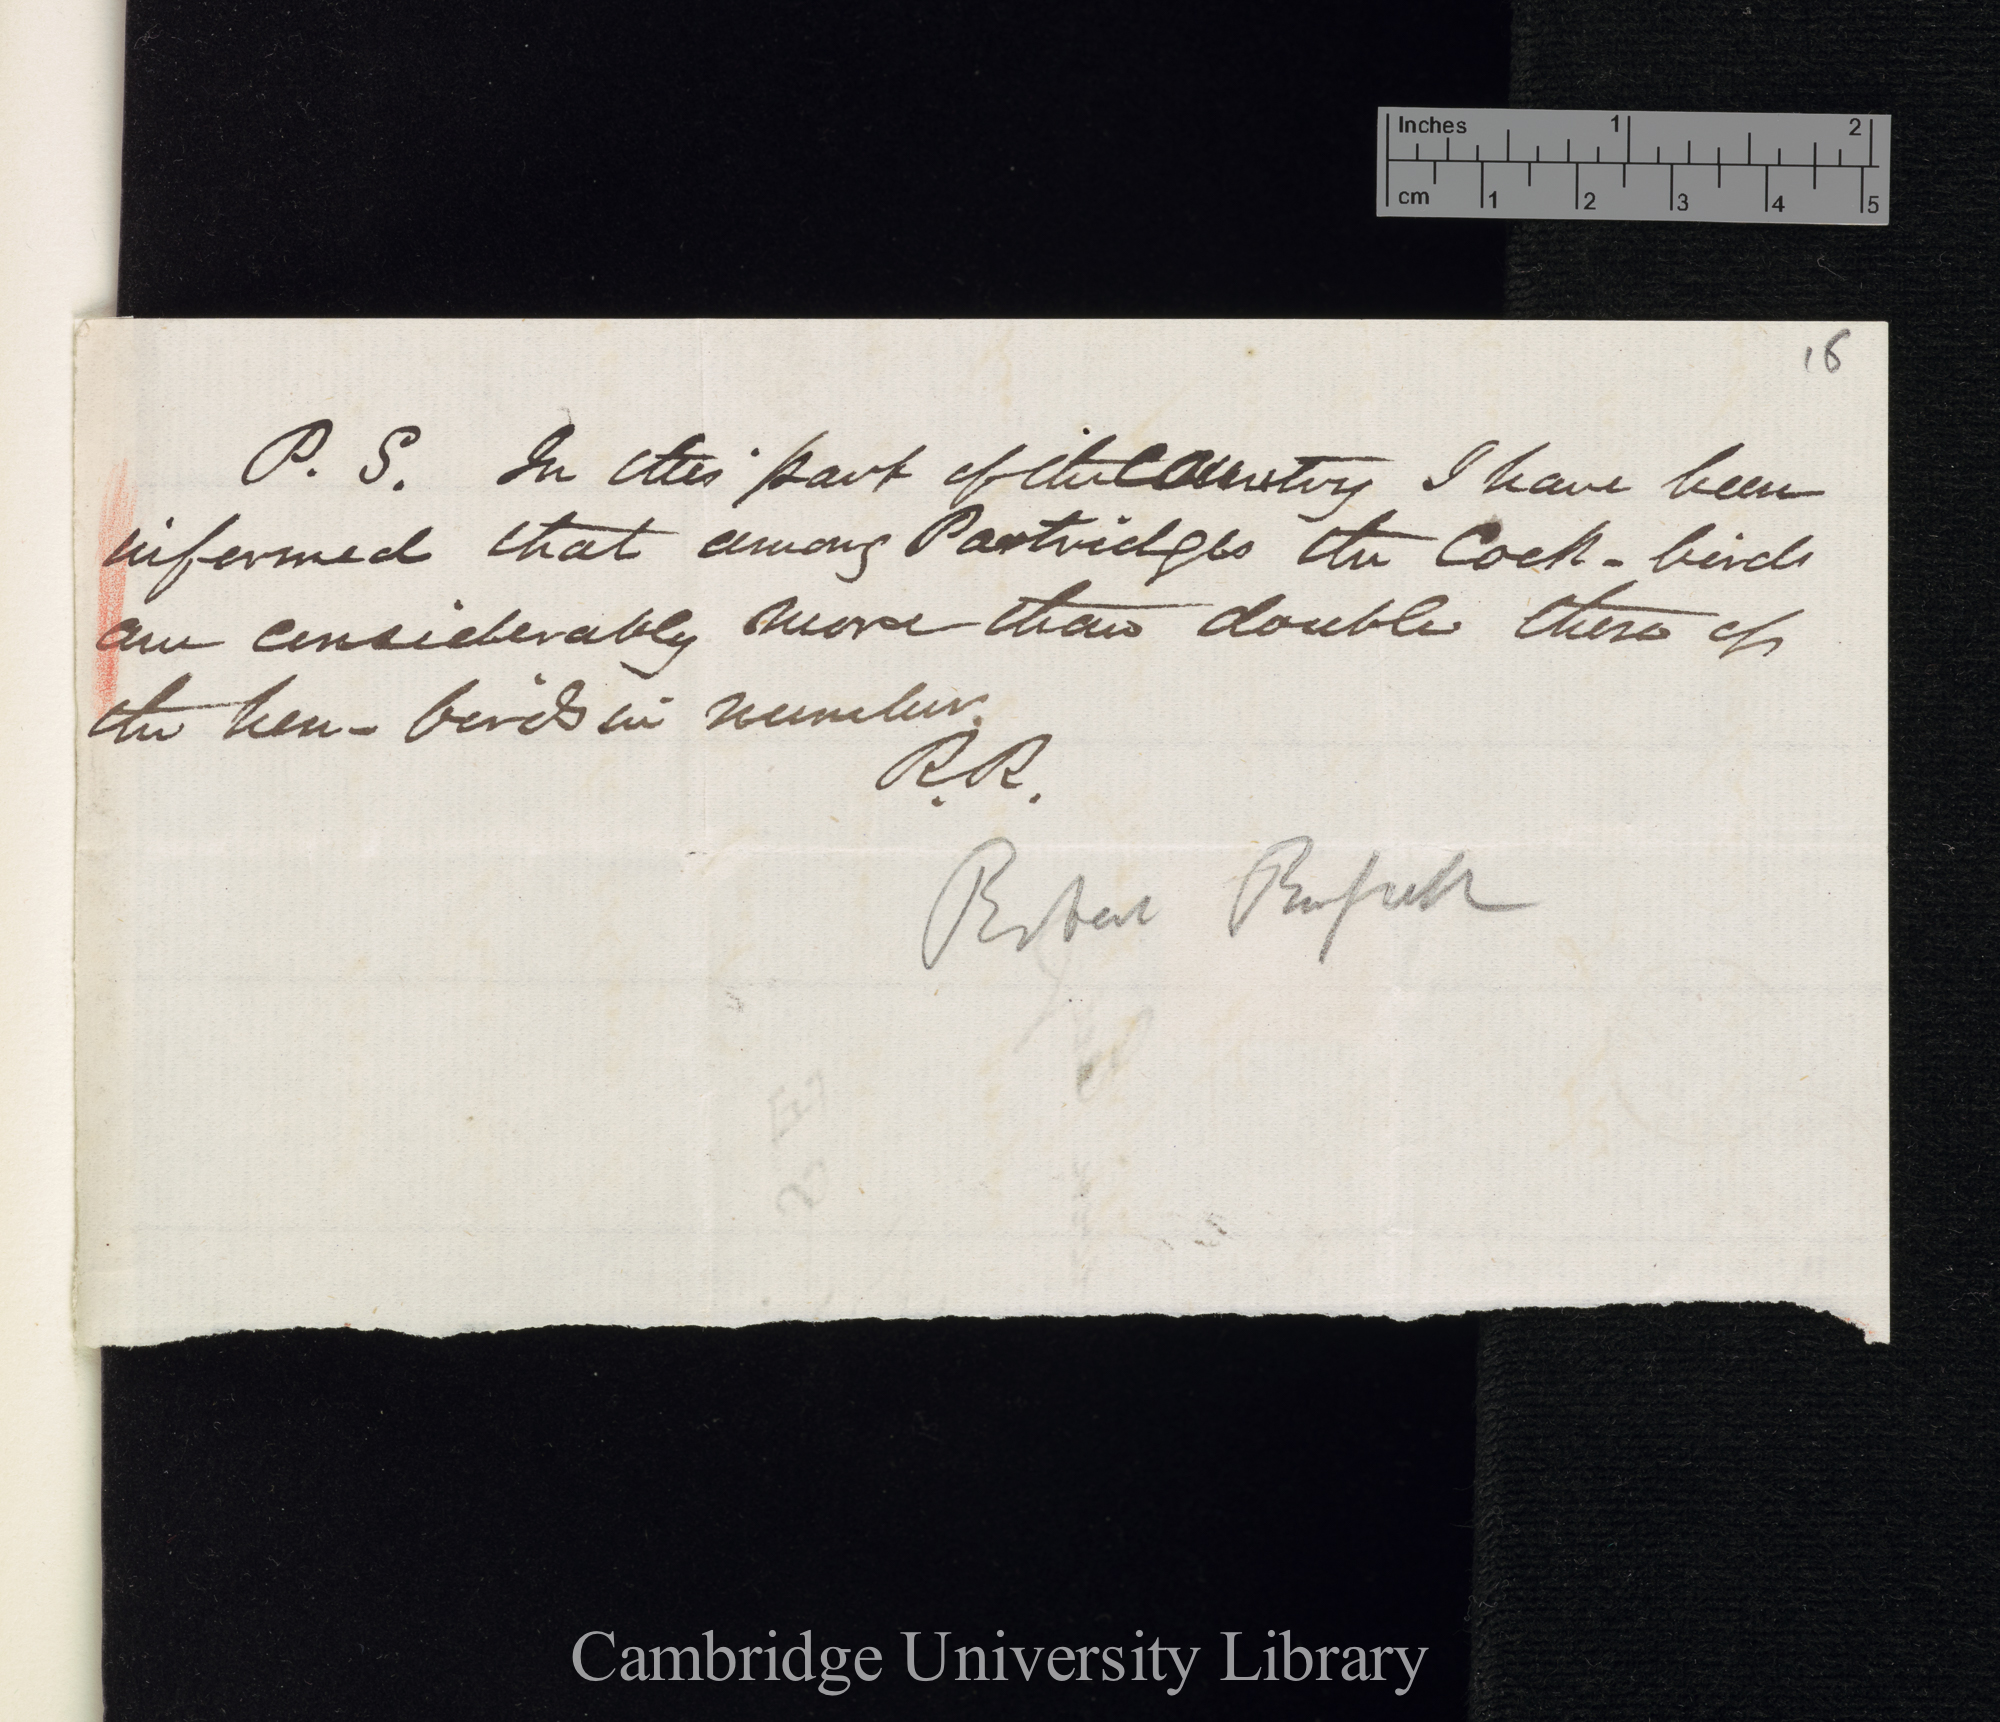 Inches 1 2
cm 1 2 3 4 5
18
P. S. In this part of the country I have been
informed that among Partridges the Cock-birds
are considerably more than double those of
the hen-birds in number.
R.R.
Robert
Cambridge University Library